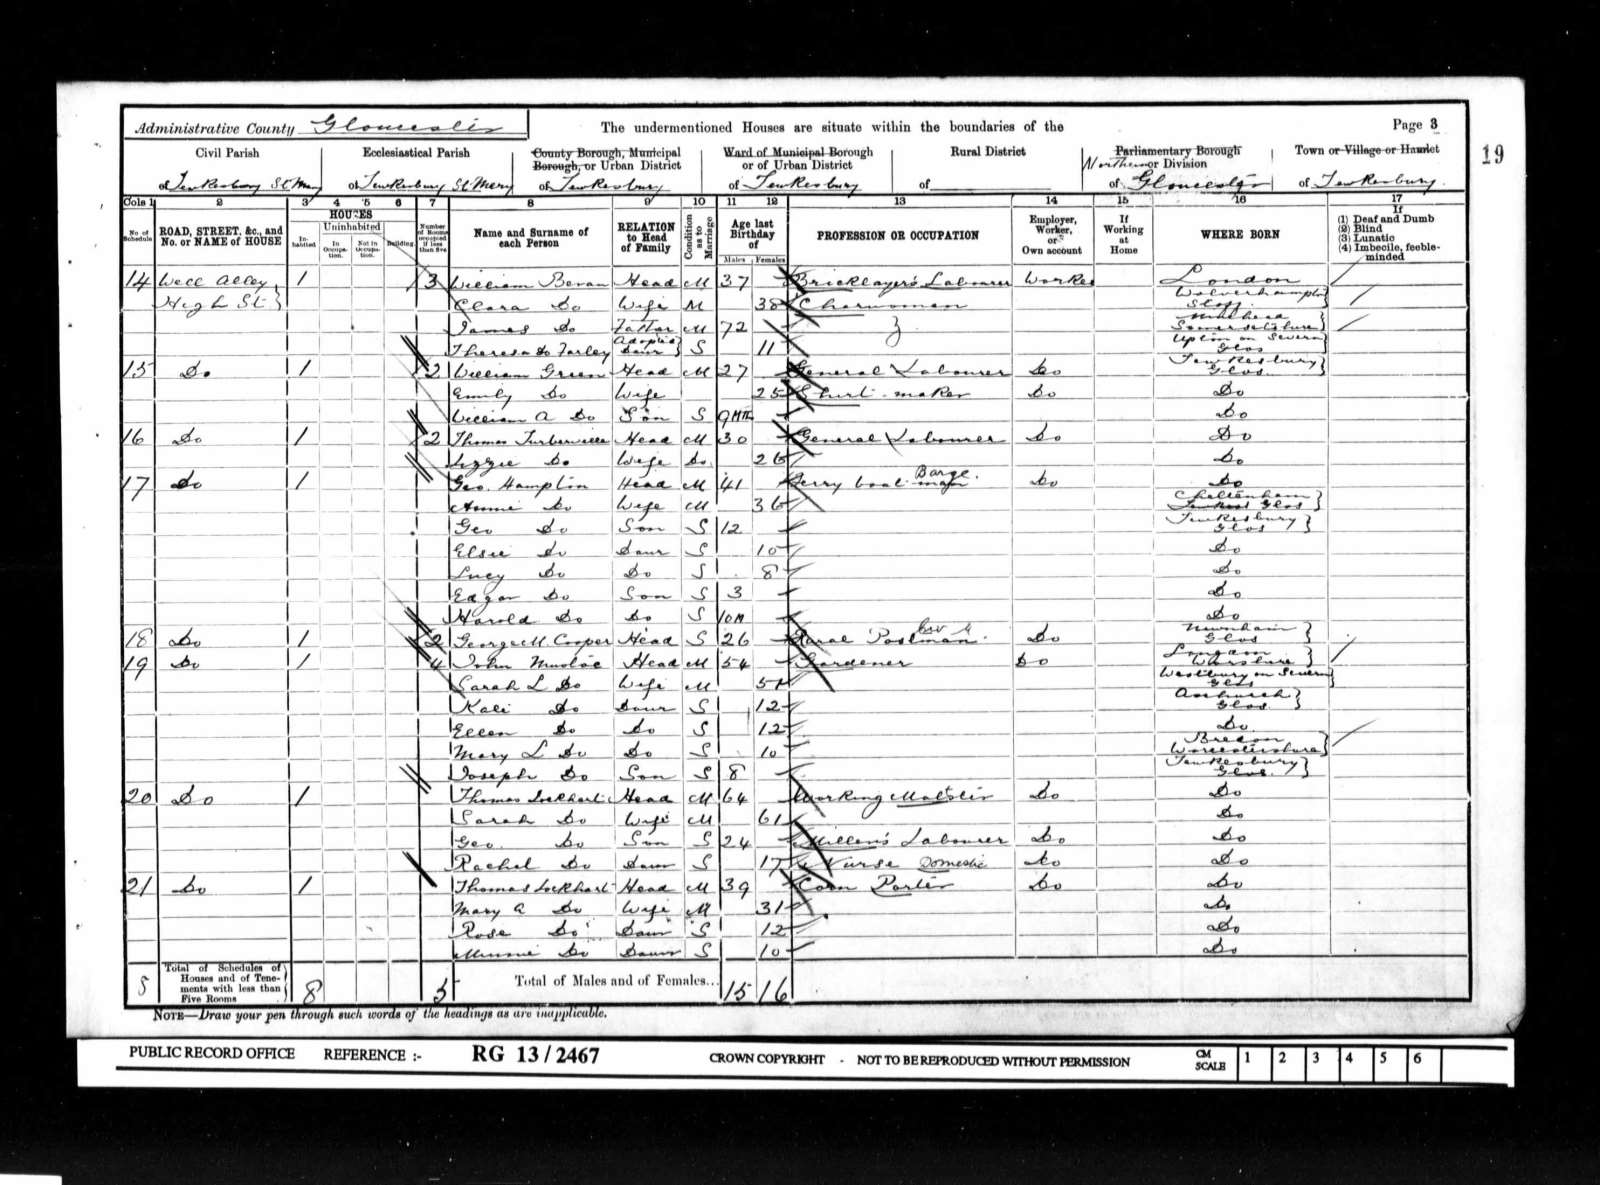 Administrative County Gloucester
The undermentioned Houses are situate within the boundaries of the
Page 3
19
Civil Parish
of Tewkesbury St. Mary
Ecclesiastical Parish
of Tewkesbury St. Mary
County Borough, Municipal
Borough, or Urban District
of Tewkesbury
Ward of Municipal Borough
or of Urban District
of Tewkesbury
Rural District
of
Parliamentary Borough
Northern or Division
of Gloucester
Town or Village or Hamlet
of Tewkesbury
Cols 1 2 3 4 5 6 7 8 9 10 11 12 13 14 15 16 17
No. of Schedule
ROAD, STREET, &c., and No. or NAME of HOUSE
HOUSES
In-habited
Uninhabited
In Occupa-tion.
Not in Occupa-tion.
Building.
Number of Rooms occupied if less than five
Name and Surname of each Person
RELATION to Head of Family
Condition as to Marriage
Age last Birthday of
Males Females
PROFESSION OR OCCUPATION
Employer, Worker, or Own account
If Working at Home
WHERE BORN
If
(1) Deaf and Dumb
(2) Blind
(3) Lunatic
(4) Imbecile, feeble-minded
14 Well Alley 1 3 William Bevan Head M 37 Bricklayer's Labourer Worker London
High St Clara Do Wife M 38 Charwoman Wolverhampton Staff.
James Do Father M 72 Somersetshire
Theresa Do Farley Adopted Daur S 11 Upton on Severn Glos
15 Do 1 2 William Green Head M 27 General Labourer Do Tewkesbury Glos
Emily Do Wife 25 Shirt maker Do Do
William A Do Son S 9 Mth Do
16 Do 1 2 Thomas Turberville Head M 30 General Labourer Do Do
Lizzie Do Wife Do 26 Do
17 Do 1 Geo. Hampton Head M 41 Ferry boat man Barge Do Do
Annie Do Wife M 36 Cheltenham Glos
Geo Do Son S 12 Tewkesbury Glos
Elsie Do Daur S 10 Do
Lucy Do Do S 8 Do
Edgar Do Son S 3 Do
Harold Do Do S 10 M Do
18 Do 1 2 George M. Cooper Head S 26 Rural Postman Do Newnham Glos
19 Do 1 4 John Head M 54 Gardener Do Longdon
Sarah L Do Wife M 51 Westbury on Severn Glos
Kate Do Daur S 12 Ashchurch Glos
Ellen Do Do S 12 Do
Mary L Do Do S 10 Bredon Worcestershire
Joseph Do Son S 8 Tewkesbury Glos.
20 Do 1 Thomas Lockhart Head M 64 Working Maltster Do Do
Sarah Do Wife M 61 Do
Geo. Do Son S 24 Miller's Labourer Do Do
Rachel Do Daur S 17 Nurse Domestic Do Do
21 Do 1 Thomas Lockhart Head M 39 Corn Porter Do Do
Mary A Do Wife M 31 Do
Rose Do Daur S 12 Do
Minnie Do Daur S 10 Do
8 Total of Schedules of Houses and of Tene-ments with less than Five Rooms 8 5 Total of Males and of Females... 15 16
NOTE—Draw your pen through such words of the headings as are inapplicable.
PUBLIC RECORD OFFICE REFERENCE :- RG 13/2467 CROWN COPYRIGHT - NOT TO BE REPRODUCED WITHOUT PERMISSION CM SCALE 1 2 3 4 5 6